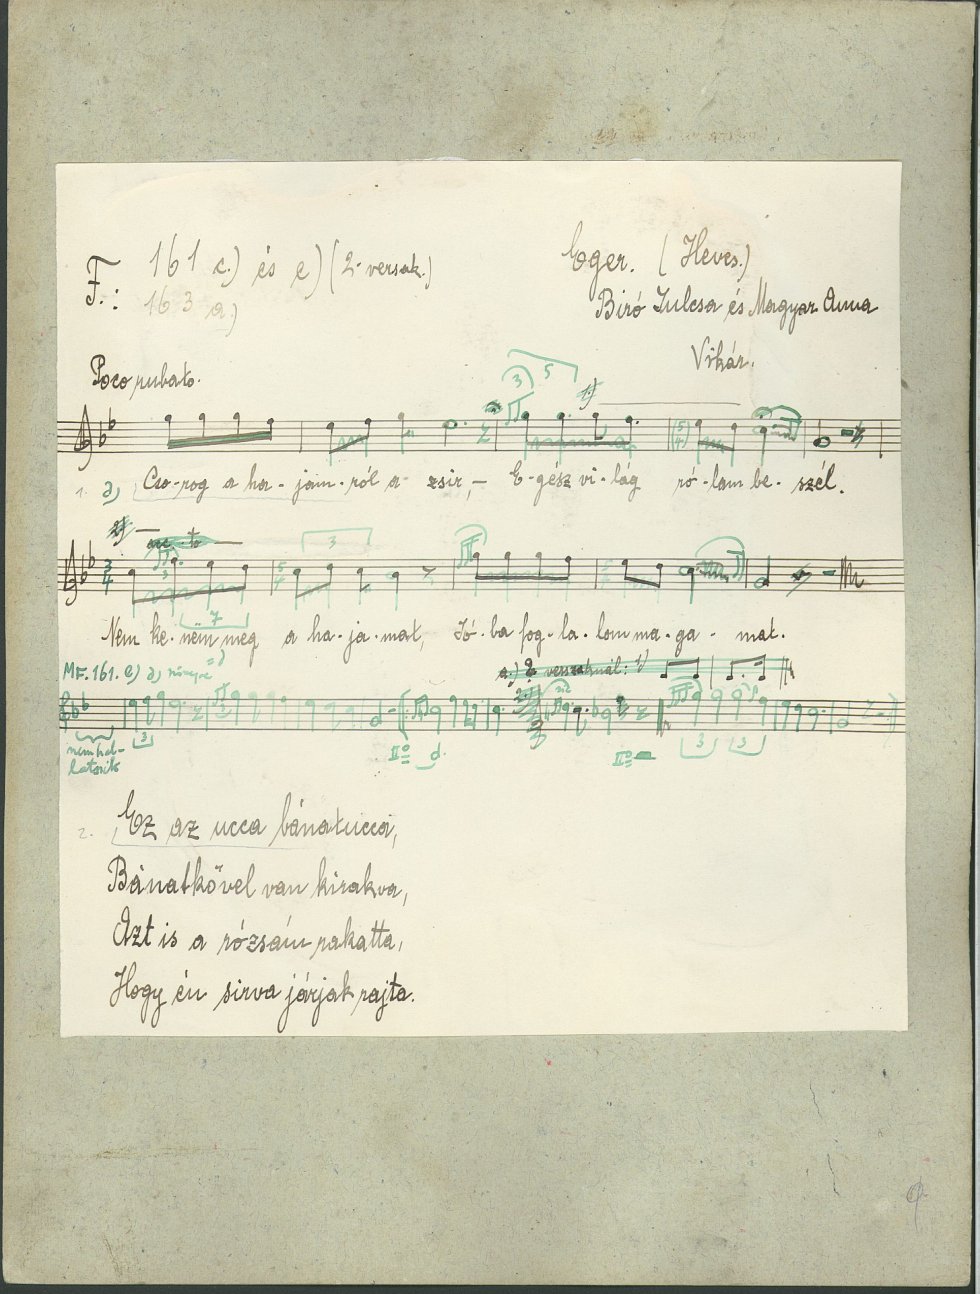 F.: 161 c.) és e) (2. versak.)
163 a)
Eger. (Heves.)
Biró Julcsa és Magyar Anna
Vikár.
Poco rubato.
3 5
1)
1. a) Cso-rog a ha-jam-ról a zsir, – E-gész vi-lág ró-lam be-szél.
2)
3
3 4
5 4
7
Nem ke-nëm meg a ha-ja-mat, Jó-ba fog-la-lom ma-ga-mat.
MF. 161. e) a)
a.) 2 verszaknál: 1)
nem hal-
latszik
3
II°
d.
II°
3 3
2. Ez az ucca bánatucca,
Bánatkővel van kirakva,
Azt is a rózsám rakatta,
Hogy én sirva járjak rajta.